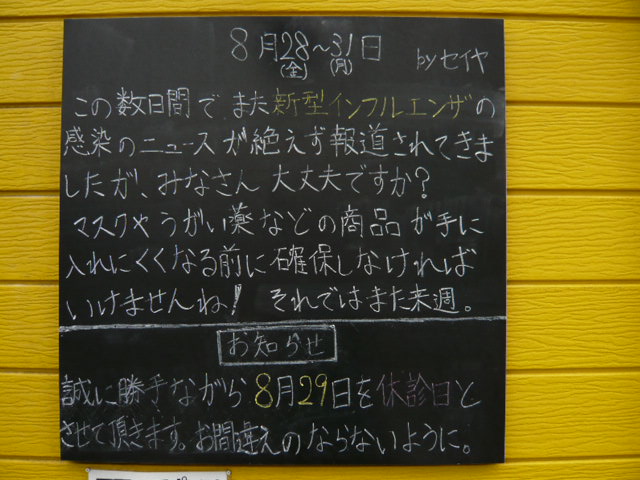 8月28〜31日 byセイヤ
(金) (月)
この数日間でまた新型インフルエンザの
感染のニュースが絶えず報道されてきま
したが、みなさん大丈夫ですか?
マスクやうがい薬などの商品が手に
入れにくくなる前に確保しなければ
いけませんね! それではまた来週。
お知らせ
誠に勝手ながら8月29日を休診日と
させて頂きます。お間違えのならないように。